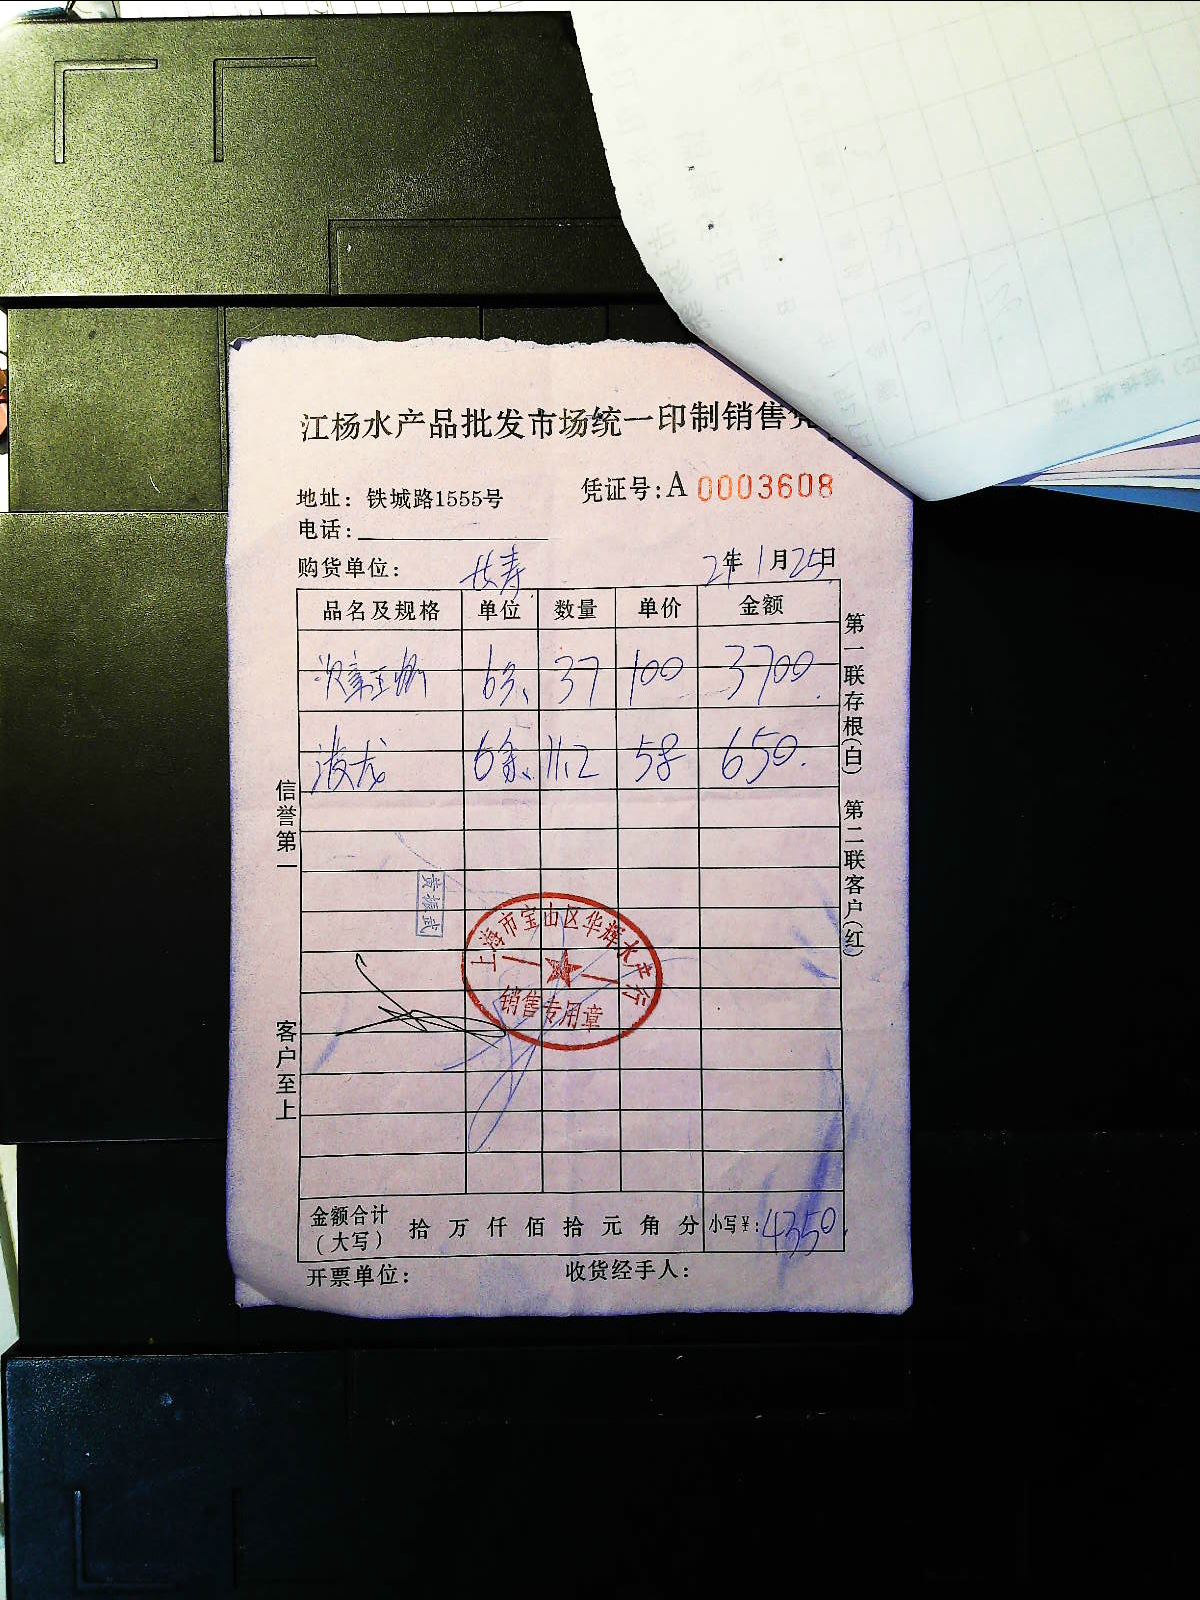 江杨水产品批发市场统一印制销售凭
地址：铁城路1555号
凭证号：A 0003608
电话：
购货单位：长寿
21年1月25日
品名及规格 单位 数量 单价 金额
6条 37 100 3700.
波龙 6条 11.2 58 650.
信誉第一
客户至上
第一联存根（白） 第二联客户（红）
黄振武
上海市宝山区华辉水产行
销售专用章
金额合计（大写） 拾 万 仟 佰 拾 元 角 分 小写¥：4350.
开票单位：
收货经手人：